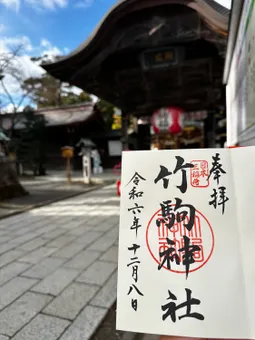 奉拝
竹駒神社
令和六年十二月八日